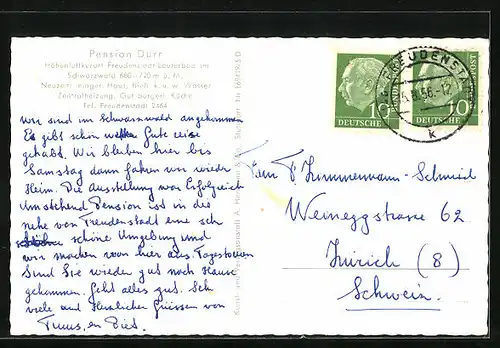 Pension Dürr
Höhenluftkurort Freudenstadt-Lauterbad im
Schwarzwald 680—770 m ü. M.
Neuzeitl. einger. Haus, fließ. k. u. w. Wasser
Zentralheizung, Gut bürgerl. Küche
Tel. Freudenstadt 2464
wir sind im Schwarzwald angekommen
Es gibt schön Gute reise
gehabt. Wir bleiben hier bis
Samstag dann fahren wir wieder
Heim. Die Austellung war Erfolgreich
Umstehend Pension ist in die
nähe von Freudenstadt eine sch
schöne Umgebung und
wir machen von hier aus Tagestouren
Sind Sie wieder gut nach Hause
gekommen. Geht alles gut. Seh
viele und Herzlichen Grüssen von
en Piet.
FREUDENST
56.-12
k
10
DEUTSCHE
10
DEUTSCHE
Zimmermann-Schmid
Weineggstrasse 62
Zürich (8)
Schweiz.